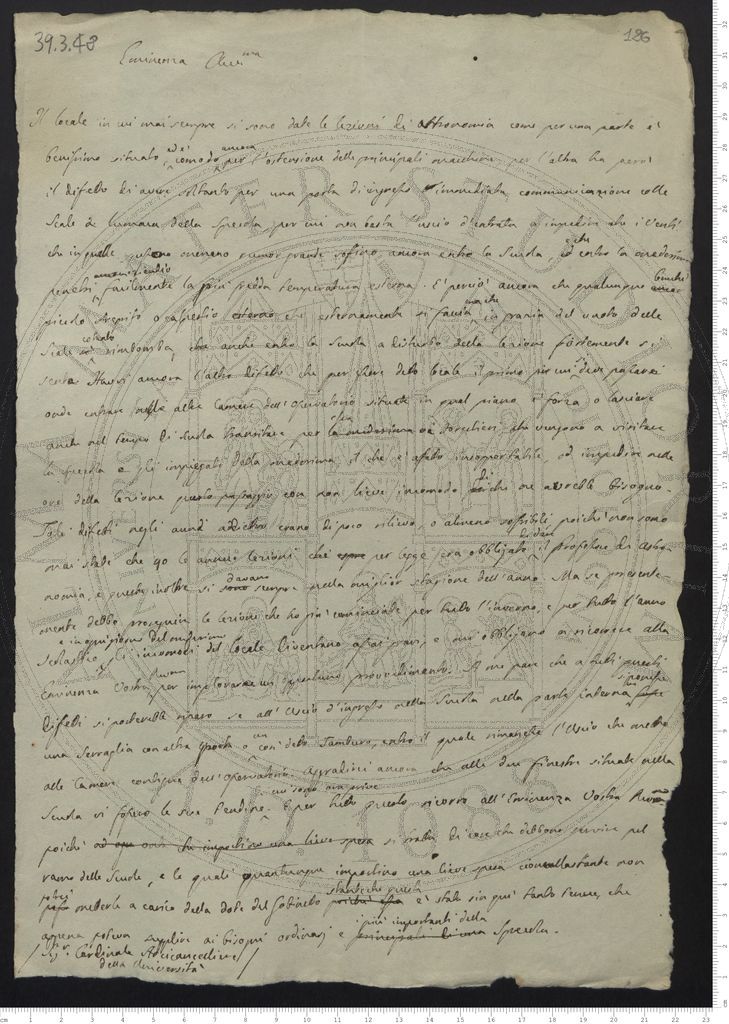 39.3.48
186
Eminenza
Il locale in cui mai sempre si sono date le lezioni di Astronomia come per una parte è
benissimo situato, ed è comodo ancora per l'ostensione delle principali macchine, per l'altra ha però
il difetto di avere soltanto per una porta d'ingresso immediata communicazione colle
Scale della Specola, per cui non basta l'uscio d'entrata a impedire che i venti
che in quelle soffino ancora entro la Scuola, ed entro la medesima
facilmente la più fredda temperatura esterna. E perciò ancora che qualunque benché
piccolo strepito o calpestio che esternamente si faccia in grazia del vuoto delle
Scale rimbomba anche entro la Scuola a disturbo della lezione fortemente si
senta. Havvi ancora l'altro difetto che per essere detto locale il primo per cui deve passarsi
onde entrare nelle altre Camere dell'Osservatorio situate in quel piano, è forza o lasciare
anche nel tempo di Scuola transitare per la medesima Forestieri che vengono a visitare
la Specola e gli impiegati della medesima, il che è affatto insopportabile, od impedire nelle
ore della lezione questo passaggio con non lieve incomodo di chi ne avrebbe bisogno.
Tali difetti negli anni addietro erano di poco rilievo, o almeno soffribili, poiché non sono
mai state che 40 le annue lezioni che per legge era obbligato il Professore di Astro
nomia, e queste inoltre si davano sempre nella miglior stagione dell'anno. Ma se presente
mente debbo proseguire le lezioni che ho già cominciate per tutto l'inverno, e per tutto l'anno
Scolastico gli incomodi del locale diventano assai gravi, e mi obbligano a ricorrere alla
Eminenza Vostra per implorarne un opportuno provvedimento. A me pare che a tutti questi
difetti si potrebbe riparo se all'Uscio d'ingresso nella Scuola nella parte interna
una Serraglia con altra porta o un così detto Tamburo, entro il quale rimanesse l'Uscio che mette
alle Camere contigue dell'Osservatorio. Aggradirei ancora che alle due finestre situate nella
Scuola vi fossero le sue Tendine. E per tutto questo ricorro all'Eminenza Vostra
poiché si tratta di cose che debbono servire pel
ramo delle Scuole, e le quali quantunque importino una lieve spesa ciò nullostante non
potrei metterle a carico della dote del Gabinetto stanteché questa è stata sin qui tanto tenue, che
appena poteva supplire ai bisogni ordinarj e i più importanti della Specola.
Sigr. Cardinale Arcicancelliere
della Università